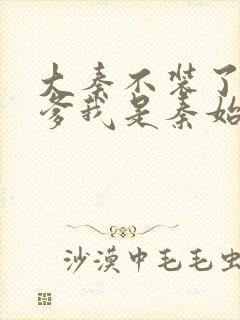 大秦不装了
爹我是秦始
沙漠中毛毛虫